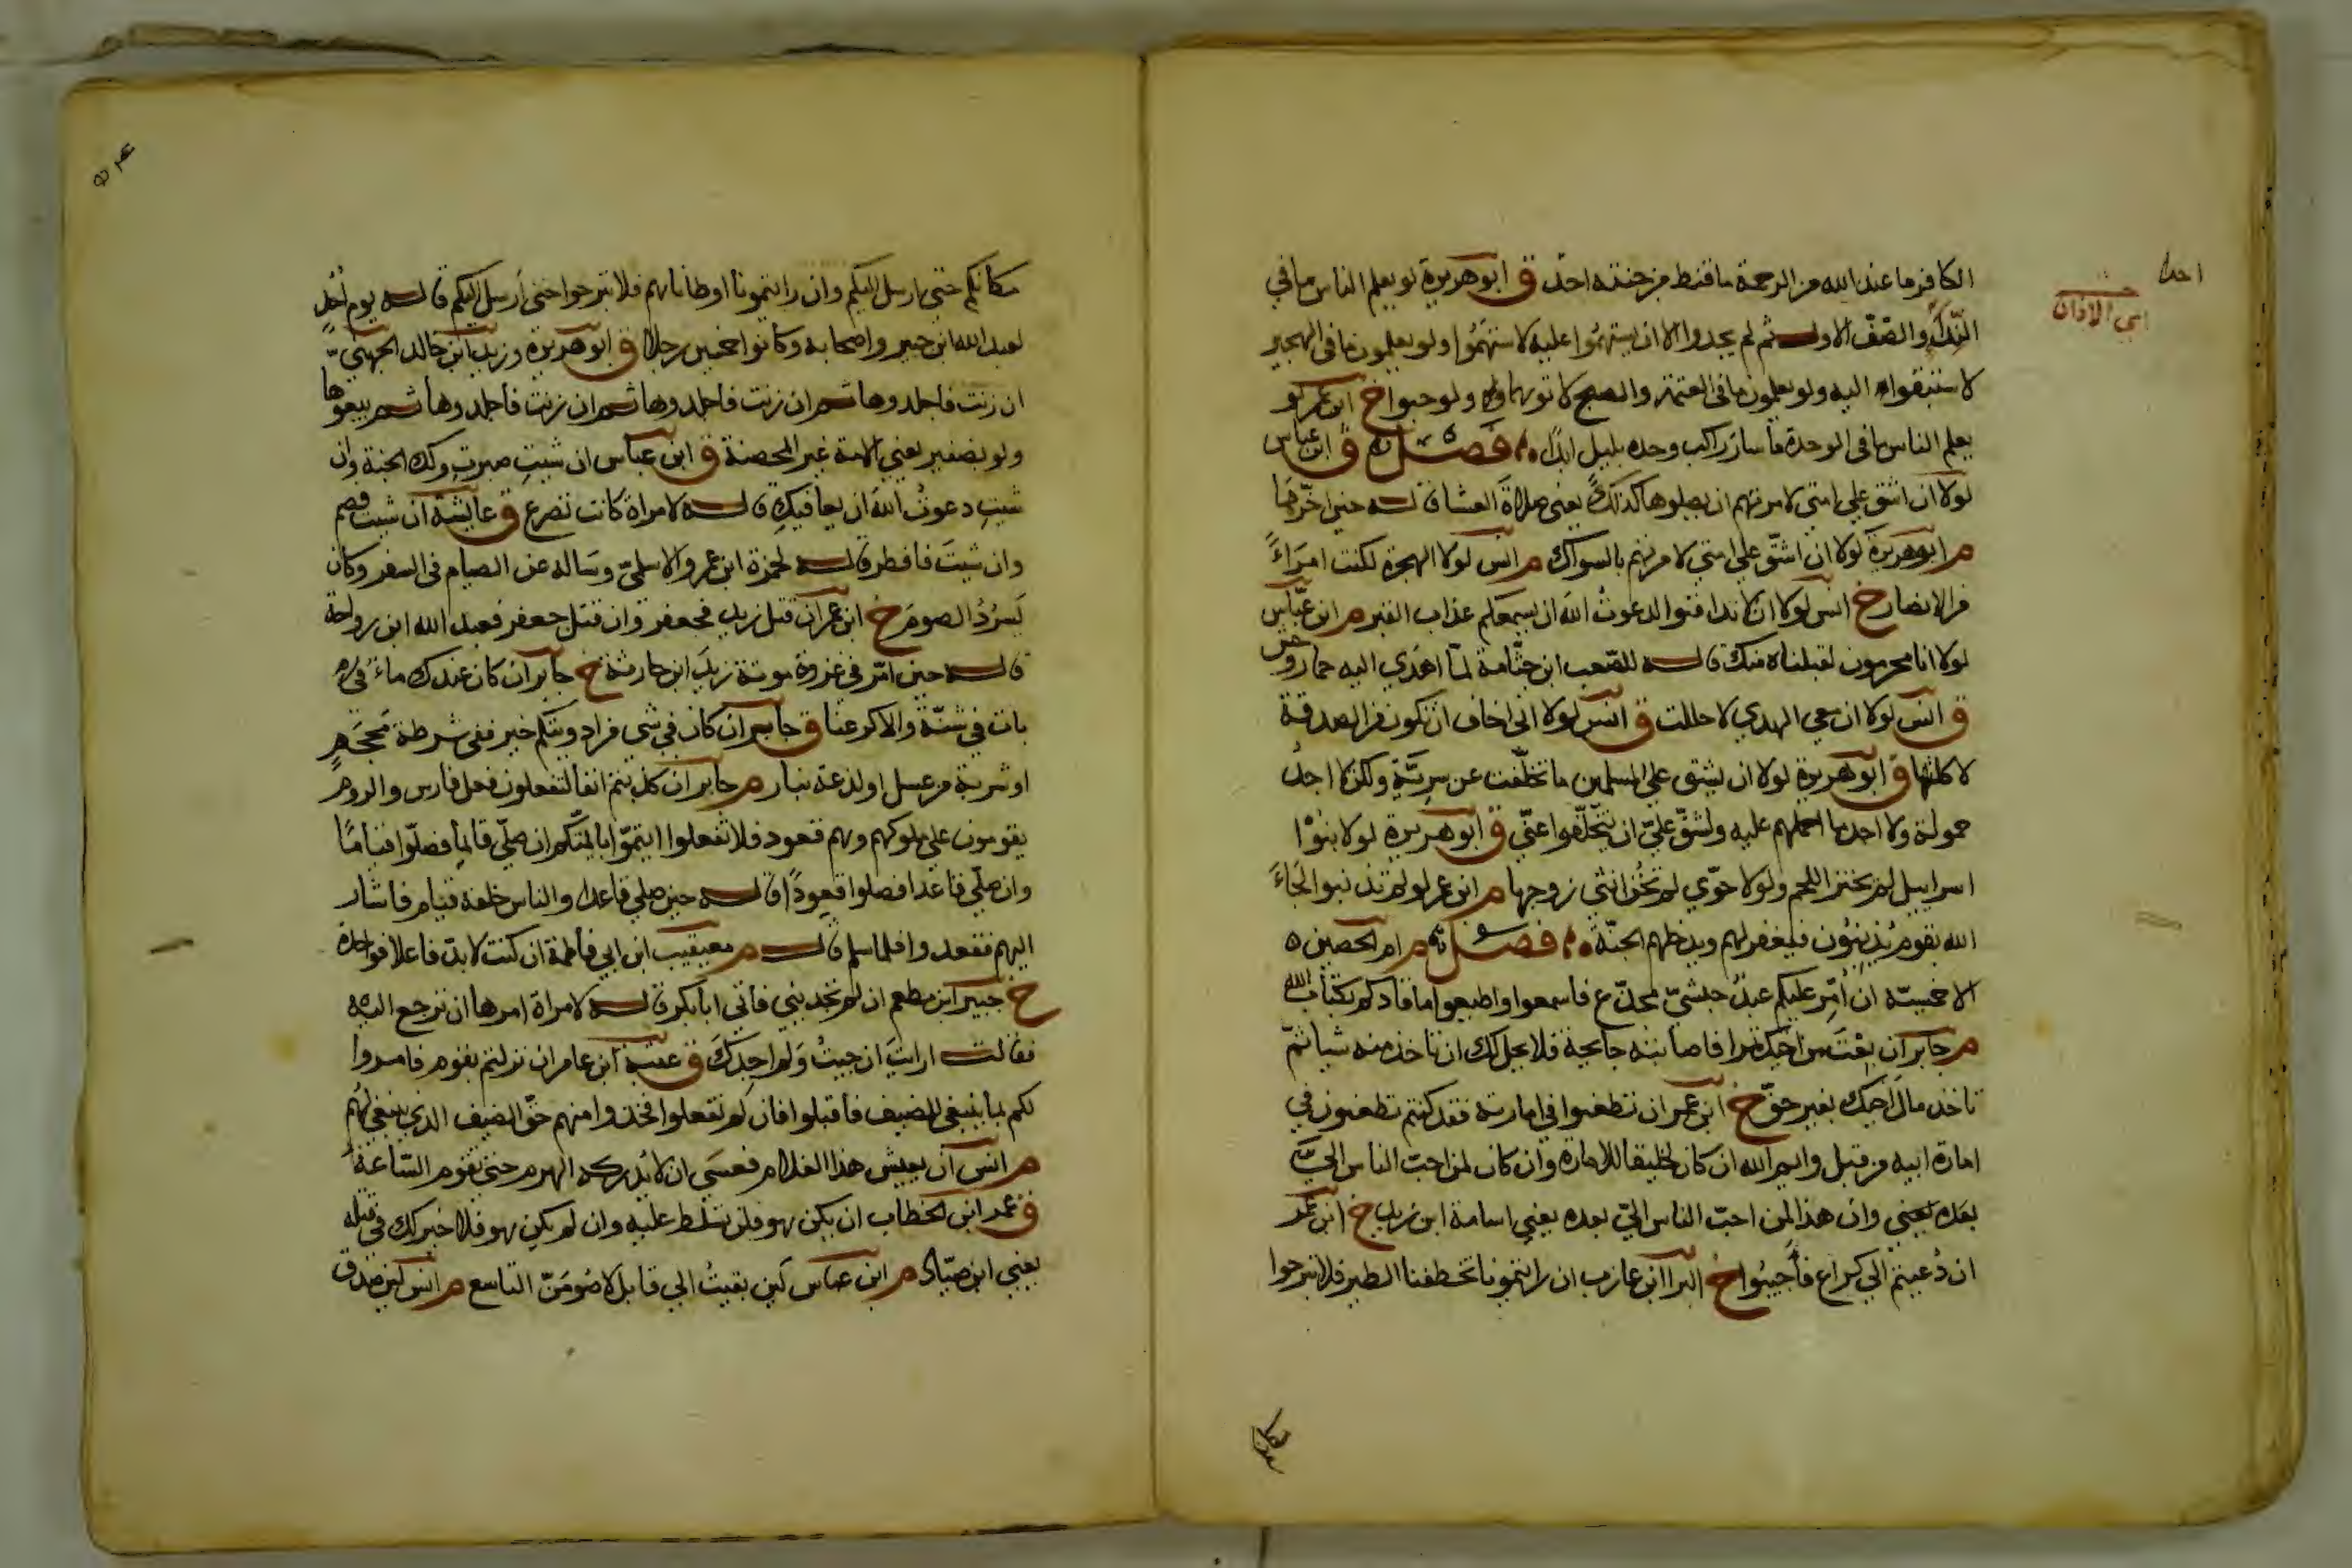 الكافر ما عند الله من الرحمة ما قنط من جنته احد ق ابو هريرة لو يعلم الناس ما في
النداء والصف الاول ثم لم يجدوا الا ان يستهموا عليه لاستهموا ولو يعلمون ما في الهجير
لاستبقوا اليه ولو يعلمون ما في العتمة والصبح لاتوهما ولو حبوا خ ابن عمر لو
يعلم الناس ما في الوحدة ما سار راكب وحده بليل ابدا فصل ق ابن عباس
لولا ان اشق علي امتي لامرتهم ان يصلوها كذلك يعني صلاة العشا قاله حين اخرها
م ابو هريرة لولا ان اشق علي امتي لامرتهم بالسواك م انس لولا الهجرة لكنت امراء
من الانصار خ انس لولا ان لا تدافنوا لدعوت الله ان يسمعكم عذاب القبر م ابن عباس
لولا انا محرمون لقبلناه منك قاله للصعب ابن جثامة لما اهدي اليه حمار وحش
ق انس لولا ان معي الهدي لاحللت ق انس لولا اني اخاف ان تكون من الصدقة
لاكلتها ق ابو هريرة لولا ان يشق علي المسلمين ما تخلفت عن سرية ولكن لا اجد
حمولة ولا اجد ما احملهم عليه ولشق علي ان يتخلفوا عني ق ابو هريرة لولا بنوا
اسراييل لم يخنز اللحم ولولا حوي لم تخن انثي زوجها م ابن عمر لو لم تذنبوا لجاء
الله بقوم يذنبون فيغفر لهم ويدخلهم الجنة فصل م ام الحصين
الاحمسية ان امر عليكم عبد حبشي مجدع فاسمعوا واطيعوا ما قادكم بكتاب الله
م جابر ان بعت من اخيك تمرا فاصابته جايحة فلا يحل لك ان تاخذ منه شيا ثم
تاخذ مال اخيك بغير حق خ ابن عمر ان تطعنوا في امارته فقد كنتم تطعنون في
امارة ابيه من قبل وايم الله ان كان لخليقا للامارة وان كان لمن احب الناس الي
بعده يعني وان هذا لمن احب الناس الي بعده يعني اسامة ابن زيد خ ابن عمر
ان دعيتم الي كراع فاجيبوا خ البرا ابن عازب ان رايتمونا تخطفنا الطير فلا تبرحوا
مكانكم حتي ارسل اليكم وان رايتمونا اوطاناهم فلا تبرحوا حتي ارسل اليكم قاله يوم احد
لعبد الله ابن جبير واصحابه وكانوا خمسين رجلا ق ابو هريرة وزيد ابن خالد الجهني
ان زنت فاجلدوها ثم ان زنت فاجلدوها ثم ان زنت فاجلدوها ثم بيعوها
ولو بضفير يعني الامة غير المحصنة ق ابن عباس ان شيت صبرت ولك الجنة وان
شيت دعوت الله ان يعافيك قاله لامراة كانت تصرع ق عايشة ان شيت فصم
وان شيت فافطر قاله لحمزة ابن عمرو الاسلمي وساله عن الصيام في السفر وكان
يسرد الصوم خ ابن عمر ان قتل زيد فجعفر وان قتل جعفر فعبد الله ابن رواحة
قاله حين امر في غزوة موتة زيد ابن حارثة خ جابر ان كان عندك ماء
بات في شنة والا كرعنا ق جابر ان كان في شي من ادويتكم خير ففي شرطة محجم
او شربة من عسل او لذعة بنار م جابر ان كدتم انفا لتفعلون فعل فارس والروم
يقومون علي ملوكهم وهم قعود فلا تفعلوا ايتموا بايمتكم ان صلي قايما فصلوا قياما
وان صلي قاعدا فصلوا قعودا قاله حين صلي قاعدا والناس خلفه قيام فاشار
اليهم فقعدوا فلما سلم قاله م معيقيب ابن ابي فاطمة ان كنت لا بد فاعلا فواحدة
خ جبير ابن مطعم ان لم تجديني فاتي ابا بكر قاله لامراة امرها ان ترجع اليه
فقالت ارايت ان جيت ولم اجدك ق عقبة ابن عامر ان نزلتم بقوم فامروا
لكم بما ينبغي للضيف فاقبلوا فان لم تفعلوا فخذوا منهم حق الضيف الذي ينبغي لهم
م انس ان يعيش هذا الغلام فعسي ان لا يدركه الهرم حتي تقوم الساعة
ق عمر ابن الخطاب ان يكن هو فلن تسلط عليه وان لم يكن هو فلا خير لك في قتله
يعني ابن صياد م ابن عباس لين بقيت الي قابل لاصومن التاسع م انس لين صدق